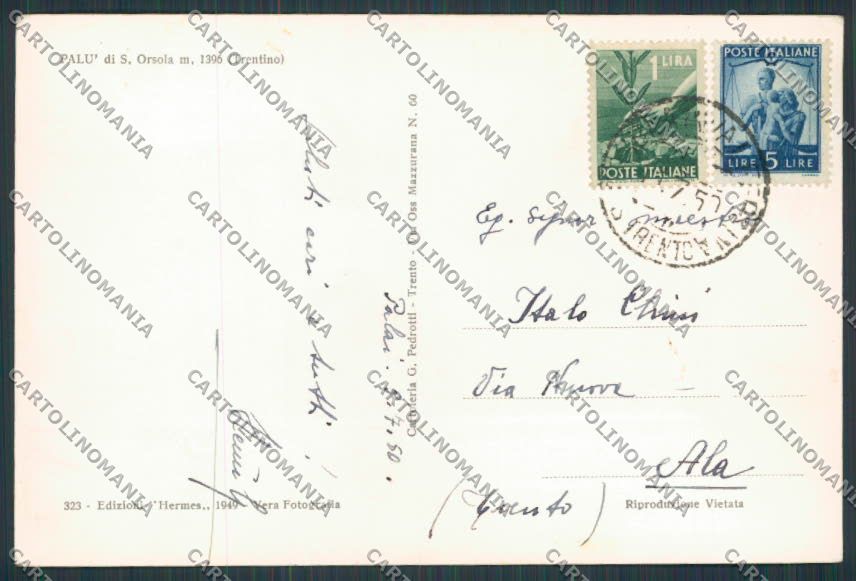 PALU' di S. Orsola m. 1396 (Trentino)
Saluti cari a tutti!
Palai. 2.7.50.
Cartoleria G. Pedrotti - Trento - Via Oss Mazzurana N. 60
1 LIRA
POSTE ITALIANE
POSTE ITALIANE
LIRE 5 LIRE
TRENTO
Eg. Signor maestro
Italo Chini
Via Nuova
Ala
(Trento)
323 - Edizioni "Hermes,, 1949 - Vera Fotografia
Riproduzione Vietata
CARTOLINOMANIA